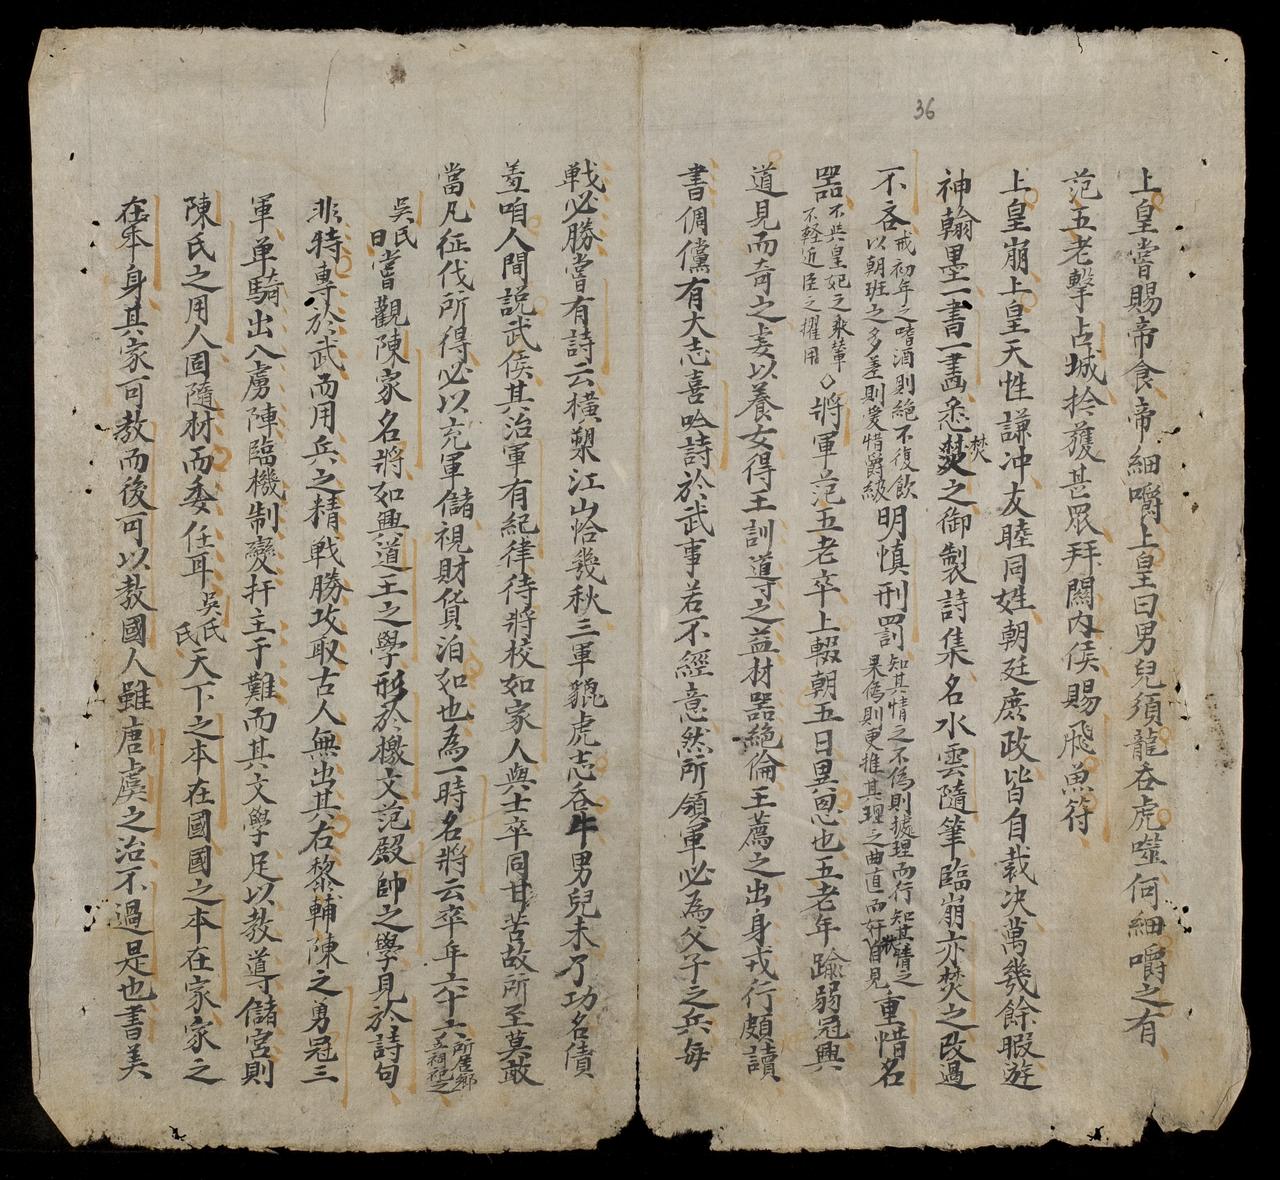 36
上皇嘗賜帝食帝細嚼上皇曰男兒須龍吞虎噬何細嚼之有
范五老擊占城於蓊甚眾拜關內侯賜飛魚符
上皇崩上皇天性謙冲友睦同姓朝廷庶政皆自裁決萬幾餘暇遊
神翰墨一書一畫悉焚焚之御製詩集名水雲隨筆臨崩亦焚之改過
不吝戒初年之嗜酒則絶不復飲以朝班之多差則爰惜爵級明慎刑罰知其情之不偽則據理而行知其情之果偽則更推其理之曲直而奸狀自見重惜名
器不共皇妃之乘輦不軽近臣之擢用將軍范五老卒上輟朝五日異恩也五老年踰弱冠興
道見而奇之妻以養女得王訓導之益材器絶倫王薦之出身戎行頗讀
書倜儻有大志喜吟詩於武事若不經意然所領軍必為父子之兵每
戰必勝嘗有詩云横槊江山恰幾秋三軍貔虎志吞牛男兒未了功名債
羞咱人間説武侯其治軍有紀律待將校如家人與士卒同甘苦故所至莫敢
當凡征伐所得必以充軍儲視財貨泊如也為一時名將云卒年六十六所居鄉立祠祀之
吳氏曰嘗觀陳家名將如興道王之學形於檄文范殿帥之學見於詩句
非特專於武而用兵之精戰勝攻取古人無出其右黎輔陳之勇冠三
軍单騎出入虜陣臨機制變扞主于難而其文學足以教導儲宮則
陳氏之用人固隨材而委任耳吳氏氏天下之本在國國之本在家家之
在本身其家可教而後可以教國人雖唐虞之治不過是也書美